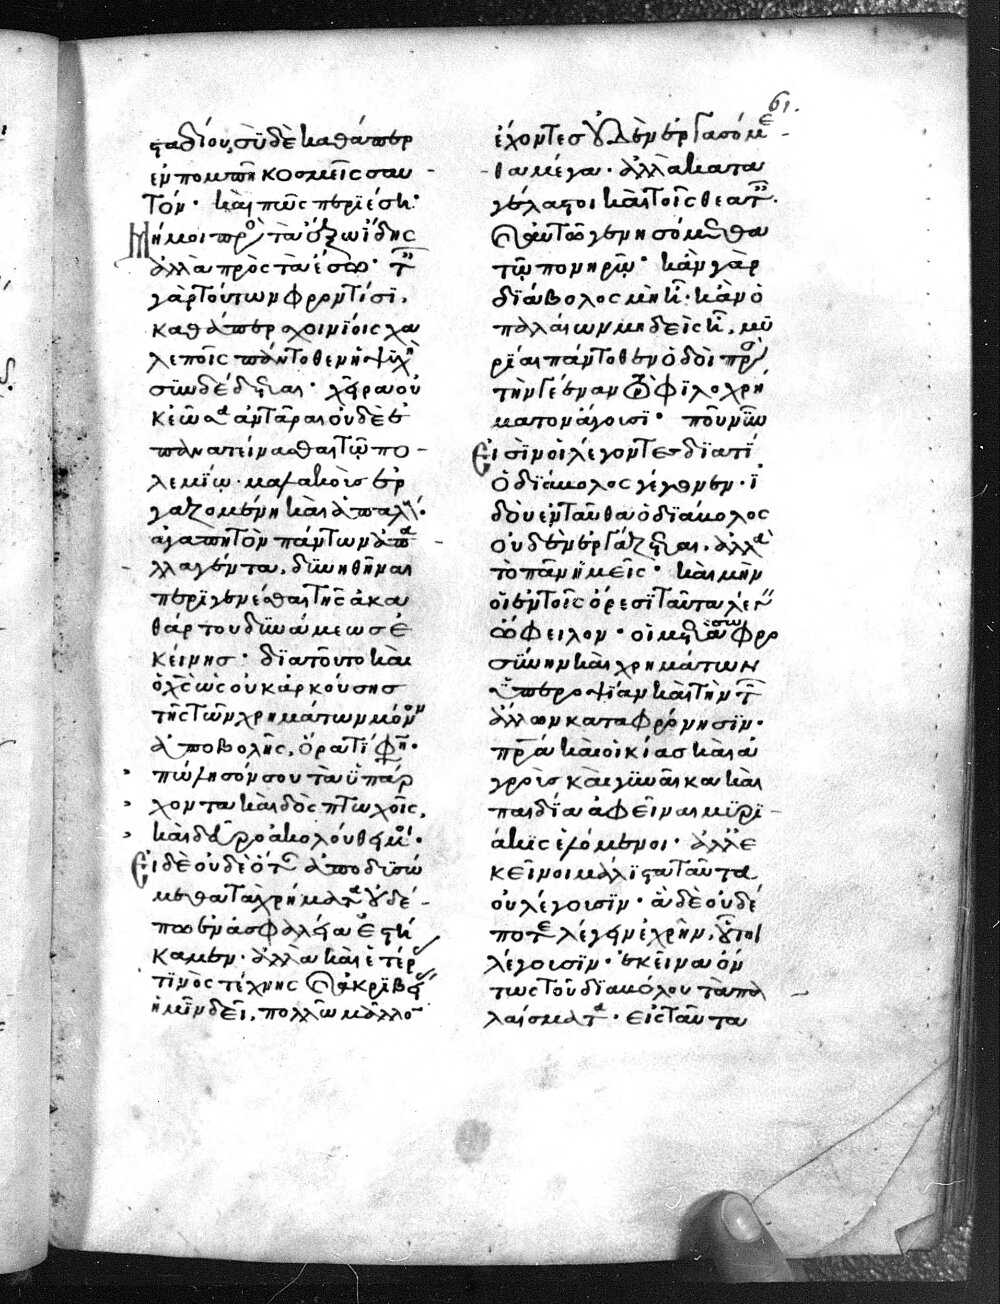 61.
σταδίου, σὺ δὲ καθάπερ
ἐν πομπῆ κοσμεῖς σαυ
τόν· καὶ πῶς περιέση·
Μή μοι πρὸς τὰ ἔξω ἴδης
ἀλλὰ πρὸς τὰ ἔσω·
γὰρ τούτων φροντίσι,
καθάπερ σχοινίοις χα
λεποῖς πάντοθεν ἡ ψυχὴ
συνδέδεται· χεῖρα οὐ
κέτι ἀντᾶραι οὐδὲ ἐ
πανατείνασθαι τῶ πο
λεμίω· μαλακοῖς ἐρ
γαζομένη καὶ ἁπαλή·
ἀγαπητὸν πάντων ἀπα
λλαγέντα, δυνηθῆναι
περιγενέσθαι τῆς ἀκα
θάρτου δυνάμεως ἐ
κείνης· διὰ τοῦτο καὶ
ὁ χς ὡς οὐκ ἀρκούσης
τῆς τῶν χρημάτων μόνον
ἀποβολῆς, ὅρα τί φη·
πώλησόν σου τὰ ὑπάρ
χοντα καὶ δὸς πτωχοῖς,
καὶ δεῦρο ἀκολούθει μοι·
Εἰ δὲ οὐδὲ ὅτε ἀποδυσώ
μεθα τὰ χρήματα οὐδέ
πω ἐν ἀσφαλεία ἑστή
καμεν· ἀλλὰ καὶ ἑτέρας
τινὸς τέχνης καὶ ἀκριβείας
ἡμῖν δεῖ, πολλῶ μᾶλλον
ἔχοντες οὐδὲν ἐργασόμε
θα μέγα· ἀλλὰ κατα
γέλαστοι καὶ τοῖς θεαταῖς·
καὶ αὐτῶ γενησόμεθα
τῶ πονηρῶ· κἂν γὰρ
διάβολος μὴ ἦ· κἂν ὁ
παλαίων μηδεὶς ἦ, μυ
ρίαι πάντοθεν ὁδοὶ πρὸς
τὴν γέενναν τὸν φιλοχρή
ματον ἄγουσι· ποῦ νῦν
Εἰσὶν οἱ λέγοντες διατί
ὁ διάβολος γέγονεν· ἰ
δοὺ ἐνταῦθα ὁ διάβολος
οὐδὲν ἐργάζεται, ἀλλὰ
τὸ πᾶν ἡμεῖς· καὶ μὴν
οἱ ἐν τοῖς ὄρεσι ταῦτα λέγειν
ὤφειλον· οἱ μετὰ σωφρο
σύνην καὶ χρημάτων
ὑπεροψίαν καὶ τὴν τῶν
ἄλλων καταφρόνησιν·
πρα καὶ οἰκίας καὶ ἀ
γροὺς καὶ γυναῖκα καὶ
παιδία ἀφεῖναι μυρι
άκις ἑλόμενοι· ἀλλ' ἐ
κεῖνοι μάλιστα ταῦτα
οὐ λέγουσιν· ἃ δὲ οὐδέ
ποτε λέγειν ἐχρῆν, οὗτοι
λέγουσιν· ἐκεῖνα ὄν
τως τοῦ διαβόλου τὰ πα
λαίσματα· εἰς ταῦτα